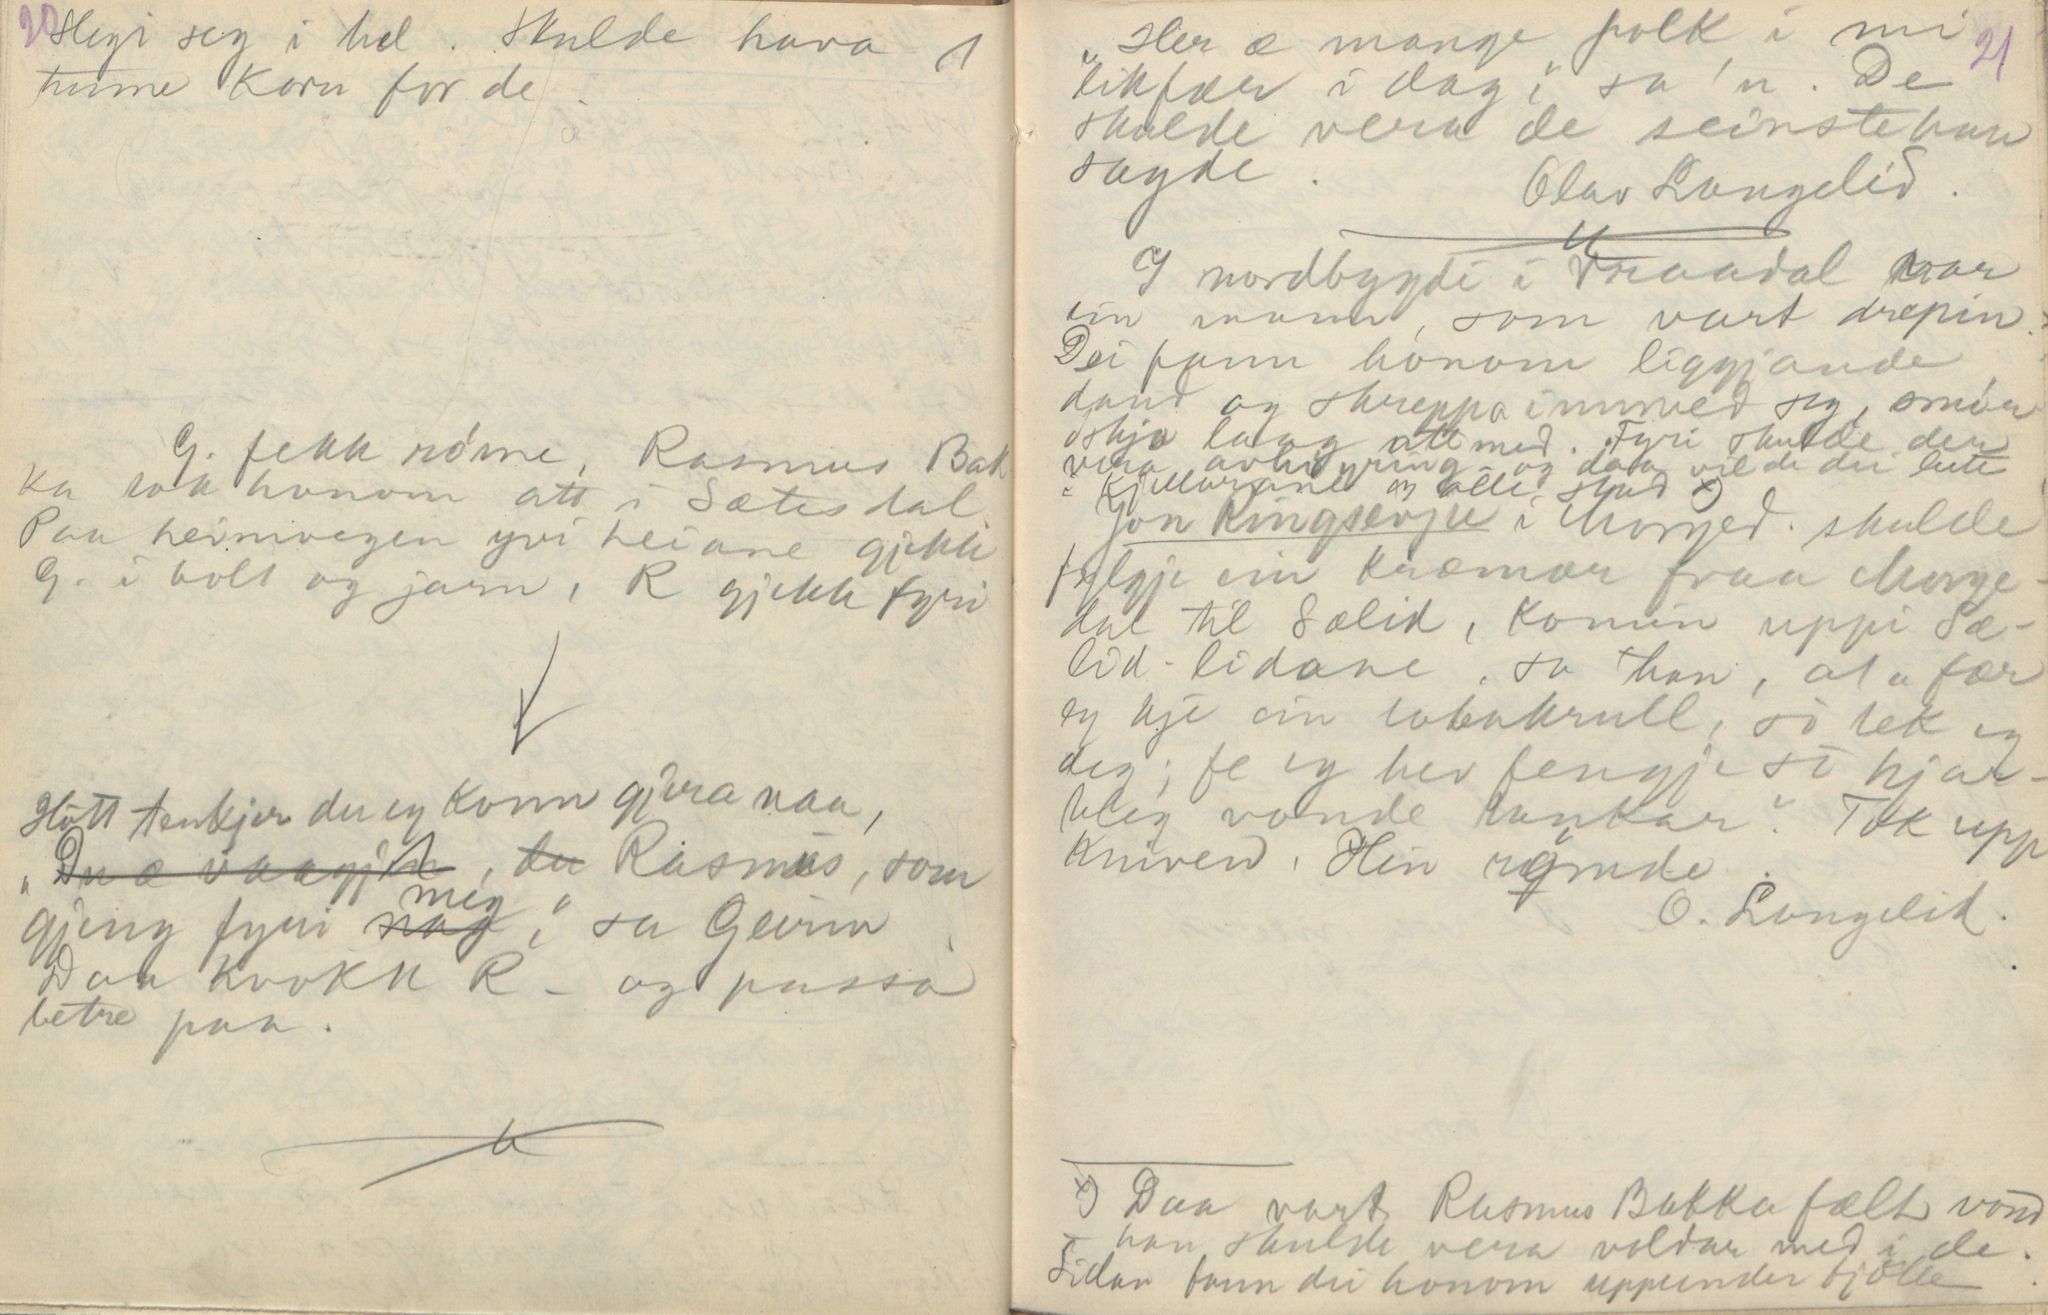 20
Slegi seg i hel. Skulde hava 1
tunne korn for de.
G. fekk røme, Rasmus Bak
ka tok honom att i Sætesdal.
Paa heimvegen yvi heiane gjekk
G. i bolt og jarn, R gjekk fyri
Hött tenkjer du eg konn gjera naa,
"Du æ vaagjin, du Rasmus, som
gjeng fyri mag meg," sa Geirin
Daa kvokk R - og passa
betre paa.
21
"Her æ mange folk i mi
likfær i dag," sa'n. De
skulde vera de seinste han
sagde.
Olav Langelid.
I nordbygdi i Vraadal var
ein mann, som vart drepin.
Dei fann honom liggjande
daud og skreppa innved seg, smör
öskja laag att med. Fyri skulde der
vera avhyring og daa vilde dei leite
i kjellarane alle stad x)
Jon Ringsevju i Morged. skulde
fylgje ein kræmar fraa Morge-
dal til Sælid, komin uppi Sæ-
lid-lidane, sa han, at "fær
eg kje ein tobakrull, so tek eg
deg; fe eg hev fengje so hjar-
teleg vonde tankar". Tok upp
kniven. Hin rømde.
O. Langelid.
x) Daa vart Rasmus Bakka fælt vond
han skulde vera valdar med i de.
Sidan fann dei honom uppunder fjølle